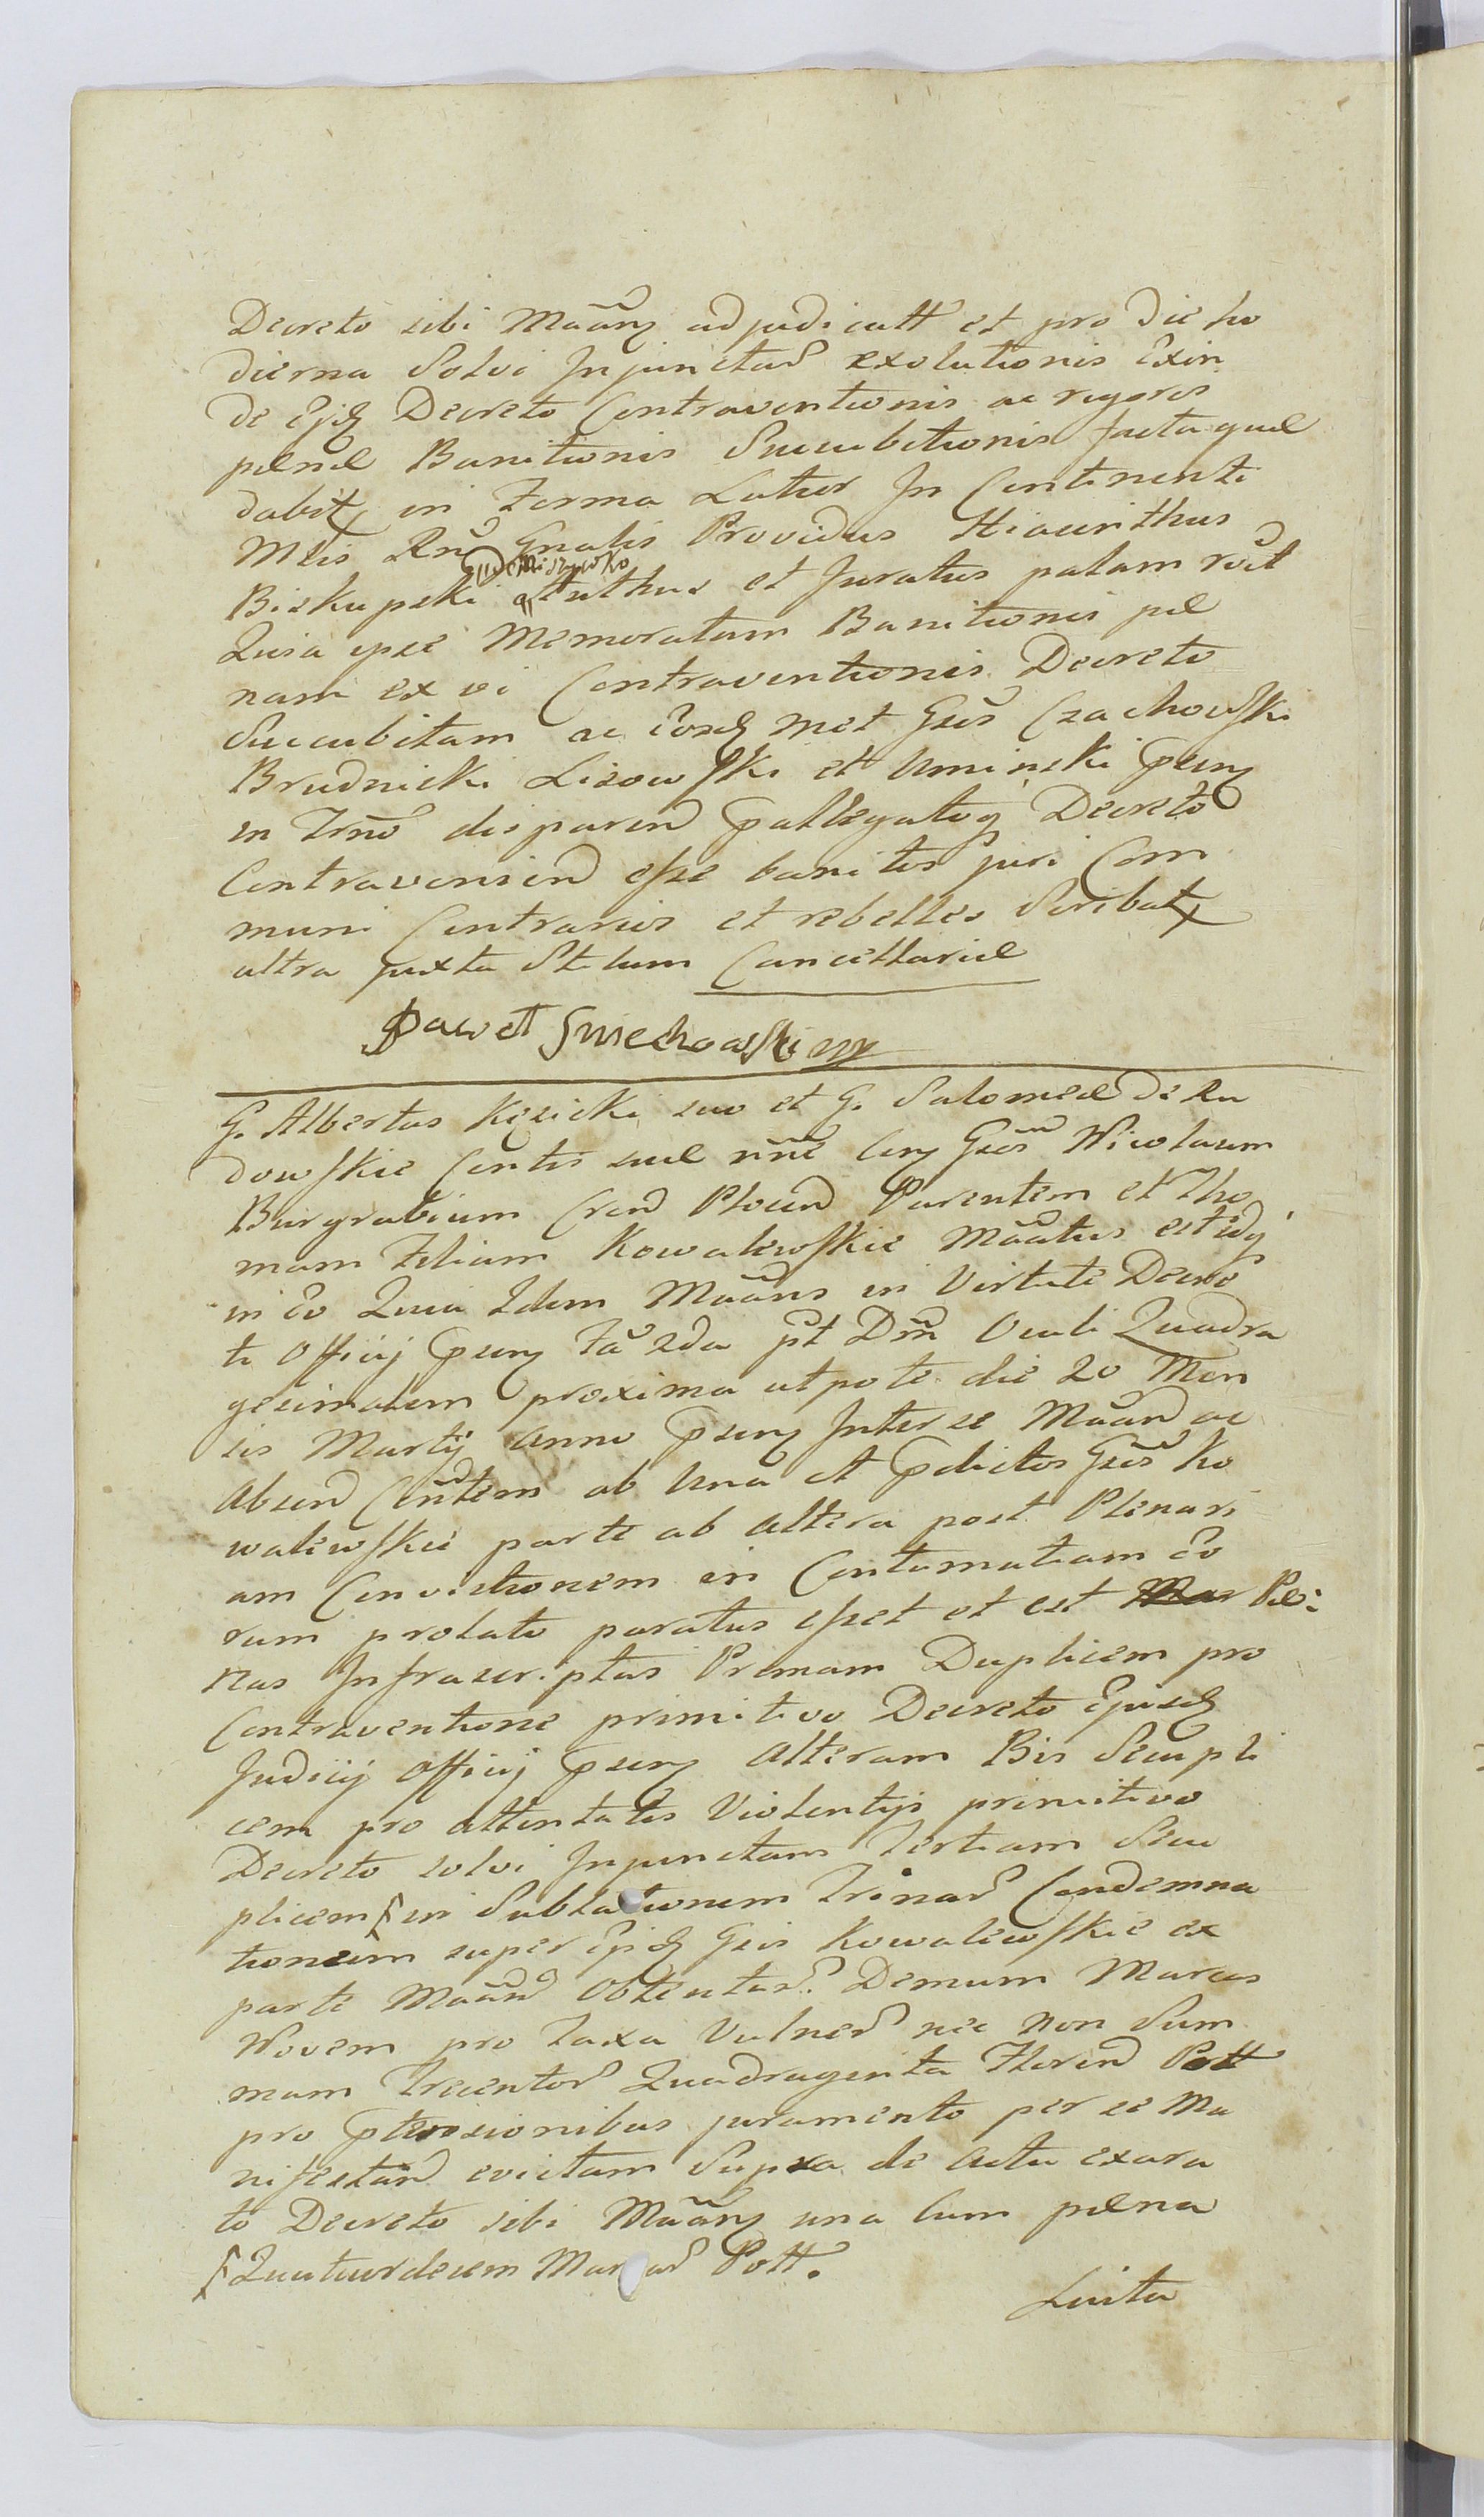 Decreto sibi Mãanz adjudicatt et pro die ho
dierna Solvi Injunctar exolutionis Exin
de Ejdz Decreto Contraventionis ac rygores
pænæ Banitionis Succubitionis factaquæ
dabitx in Forma Latior In Continenti
Mlis Rñ Gnalis Providus Hiacinthus
Biskupski de Miszewko Authus et Juratus palam roit
Quia ipse Memoratam Banitionis pæ
nam ex vi Contraventionis Decreto
Succubitam ac Eosdz met Gsõs Czachowski
Brudnicki Lisowski et Uminski psenz
in Trño disparen pallegatoq Decreto
Contravenien esse banitos juri Com
muni Contrarios et rebelles Scribatx
ultra juxta Stilum Cancellariæ
Paweł Smiechowski mp
G. Albertus Kęsicki suo et G. Salomeæ de Ru
dowskie Contis suæ nñe Cony Gsos Nicolaum
Burgrabium Cren Plocen Parentem et Tho
mam Filium Kowalewskie Mãatus est idq
in eo Quia Idem Mãans in Virtute Decre
ti Officij psenz Fã 2da pt Dm̃ Oculi Quadra
gesimalem proxima utpote die 20 Men
sis Martij Anno psenz Inter se Mãan ac
Absen Cõntem ab Una et pdictos Gsos Ko
walewskie parte ab Altera post Plenari
am Convictionem in Contumatiam Eo
rum prolato paratus esset et est Pæ:
nas Infrascriptas Primam Duplicem pro
Contraventione primitivo Decreto Ejusdz
Judicij Officij psenz Alteram Bis Scupli
cem pro attentatis Violentijs primitivo
Decreto solvi Injunctam Tertiam Scu
plicem ſ in Sublationem Trinar Condemna
tionum super Ejsdz Gsis Kowalewskie ex
parte Mãan Obtentar. Demum Marcas
Novem pro taxa Vulner nec non Sum
mam Trecentor Quadraginta Floren Poll
pro ptensionibus juramento per se Ma
nifestan evictam Supra de Actu exara
to Decreto sibi Mãanz una Cum pæna
ſ Quatuordecem Marcar Poll.
Luita